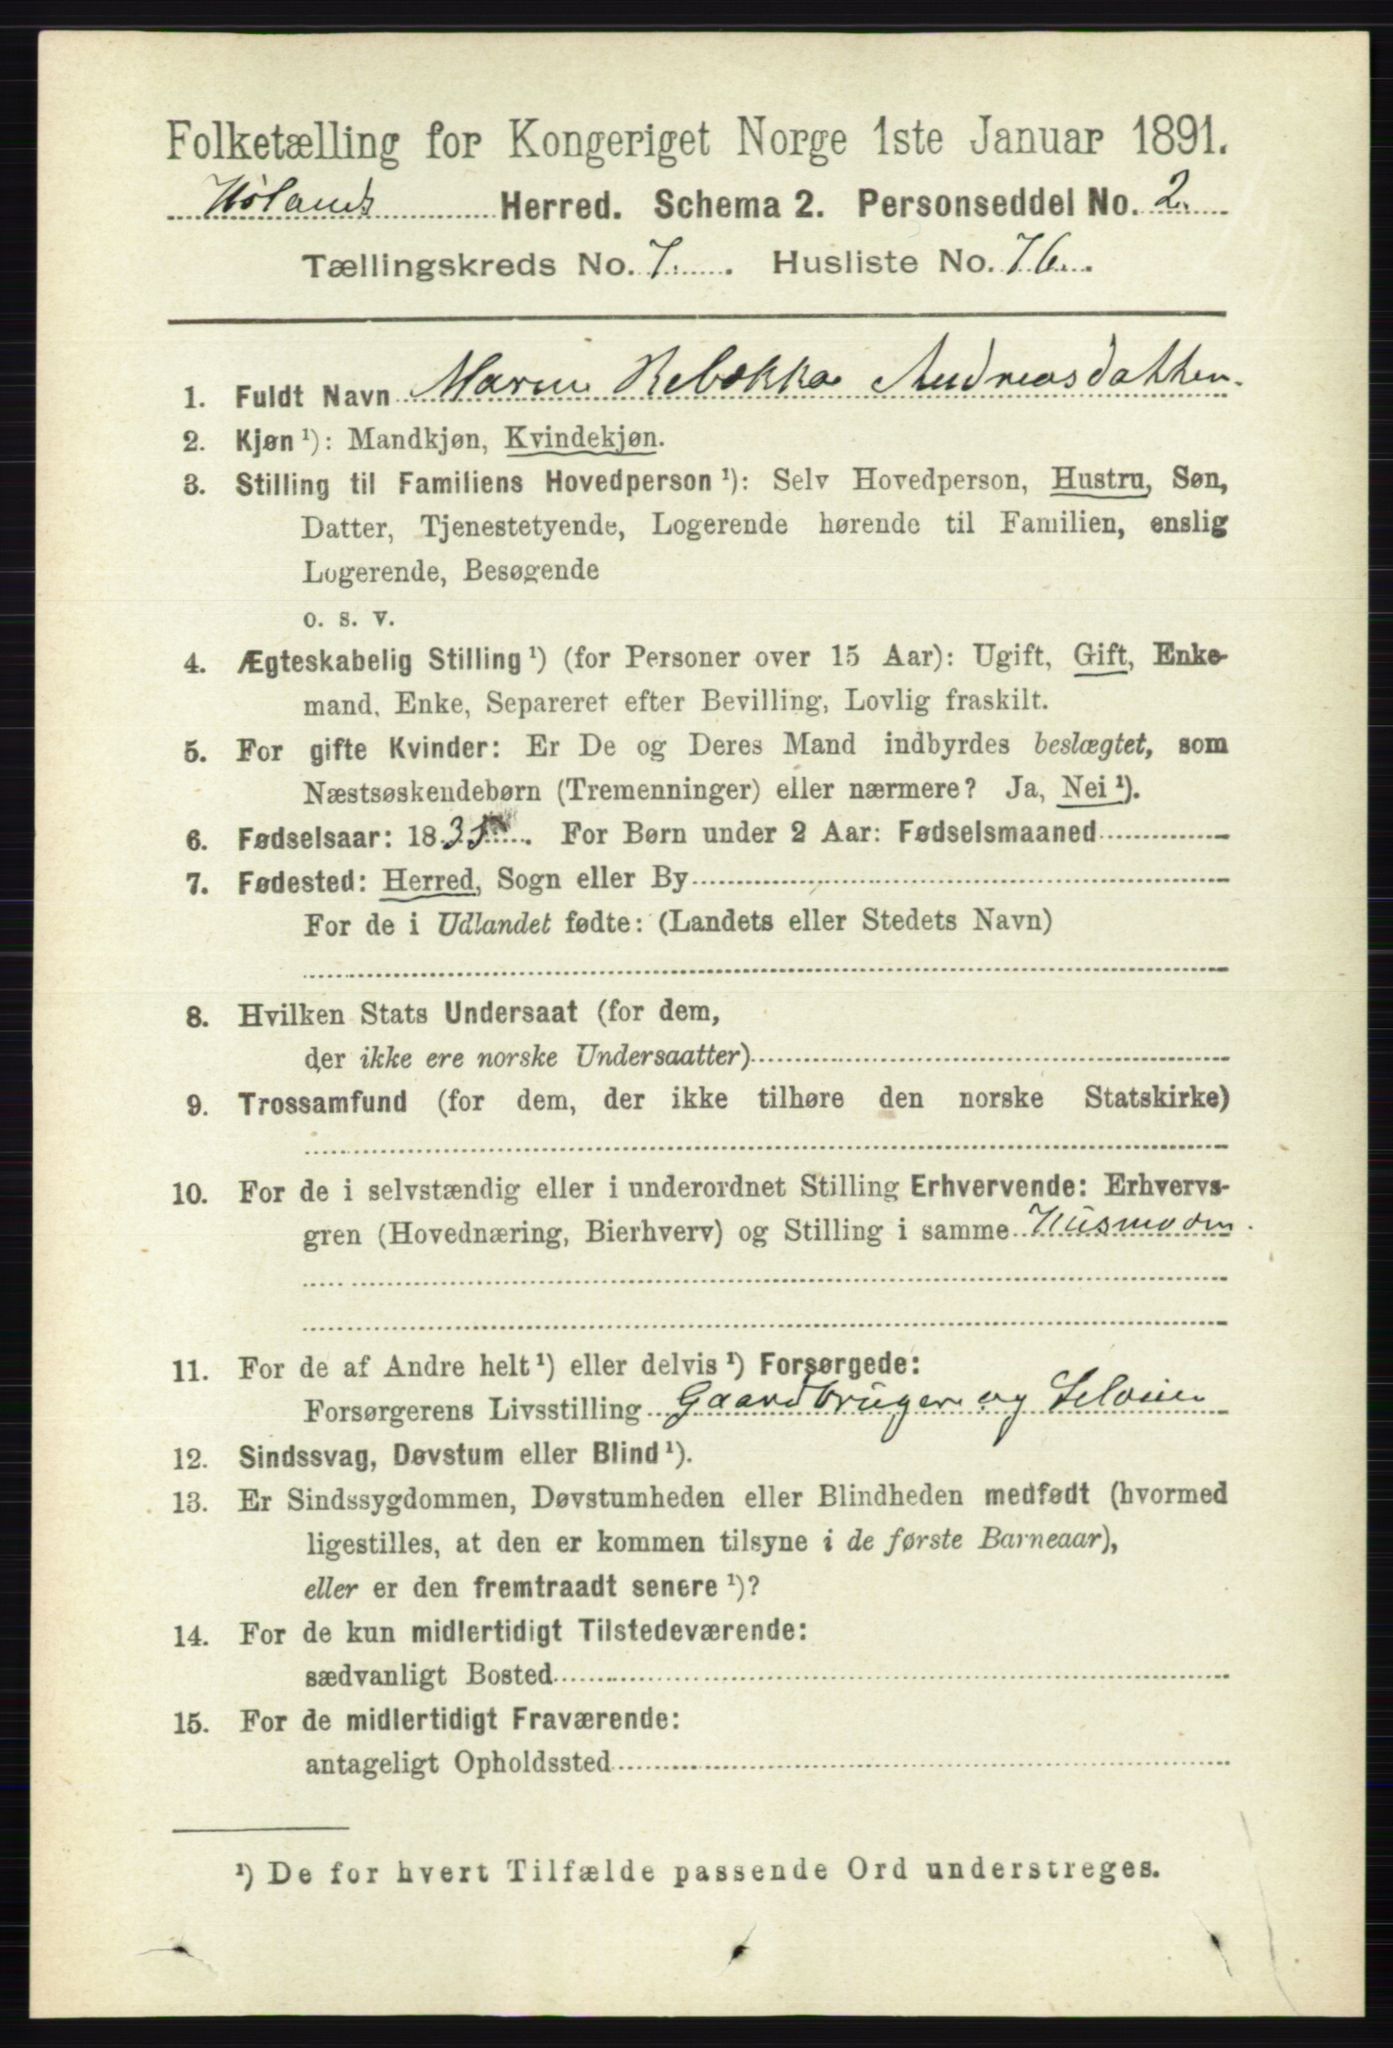 Folketælling for Kongeriget Norge 1ste Januar 1891.
Hølands Herred. Schema 2. Personseddel No. 2.
Tællingskreds No. 7. Husliste No. 76.
1. Fuldt Navn Maren Rebekka Andreasdatter.
2. Kjøn ¹): Mandkjøn, Kvindekjøn.
3. Stilling til Familiens Hovedperson ¹): Selv Hovedperson, Hustru, Søn,
Datter, Tjenestetyende, Logerende hørende til Familien, enslig
Logerende, Besøgende
o. s. v.
4. Ægteskabelig Stilling ¹) (for Personer over 15 Aar): Ugift, Gift, Enke-
mand, Enke, Separeret efter Bevilling, Lovlig fraskilt.
5. For gifte Kvinder: Er De og Deres Mand indbyrdes beslægtet, som
Næstsøskendebørn (Tremenninger) eller nærmere? Ja, Nei ¹).
6. Fødselsaar: 1835. For Børn under 2 Aar: Fødselsmaaned
7. Fødested: Herred, Sogn eller By
For de i Udlandet fødte: (Landets eller Stedets Navn)
8. Hvilken Stats Undersaat (for dem,
der ikke ere norske Undersaatter)
9. Trossamfund (for dem, der ikke tilhøre den norske Statskirke)
10. For de i selvstændig eller i underordnet Stilling Erhvervende: Erhvervs-
gren (Hovednæring, Bierhverv) og Stilling i samme Husmoder.
11. For de af Andre helt ¹) eller delvis ¹) Forsørgede:
Forsørgerens Livsstilling Gaardbruger og Selveier
12. Sindssvag, Døvstum eller Blind ¹).
13. Er Sindssygdommen, Døvstumheden eller Blindheden medfødt (hvormed
ligestilles, at den er kommen tilsyne i de første Barneaar),
eller er den fremtraadt senere ¹)?
14. For de kun midlertidigt Tilstedeværende:
sædvanligt Bosted
15. For de midlertidigt Fraværende:
antageligt Opholdssted
¹) De for hvert Tilfælde passende Ord understreges.